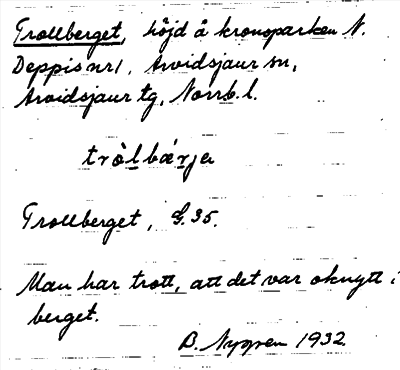 Trollberget, höjd å kronoparken N.
Deppis nr 1, Arvidsjaur sn,
Arvidsjaur tg, Norrb. l.
tròlbærje
Trollberget, G. 35.
Man har trott, att det var oknytt i
berget.
B. Nygren 1932